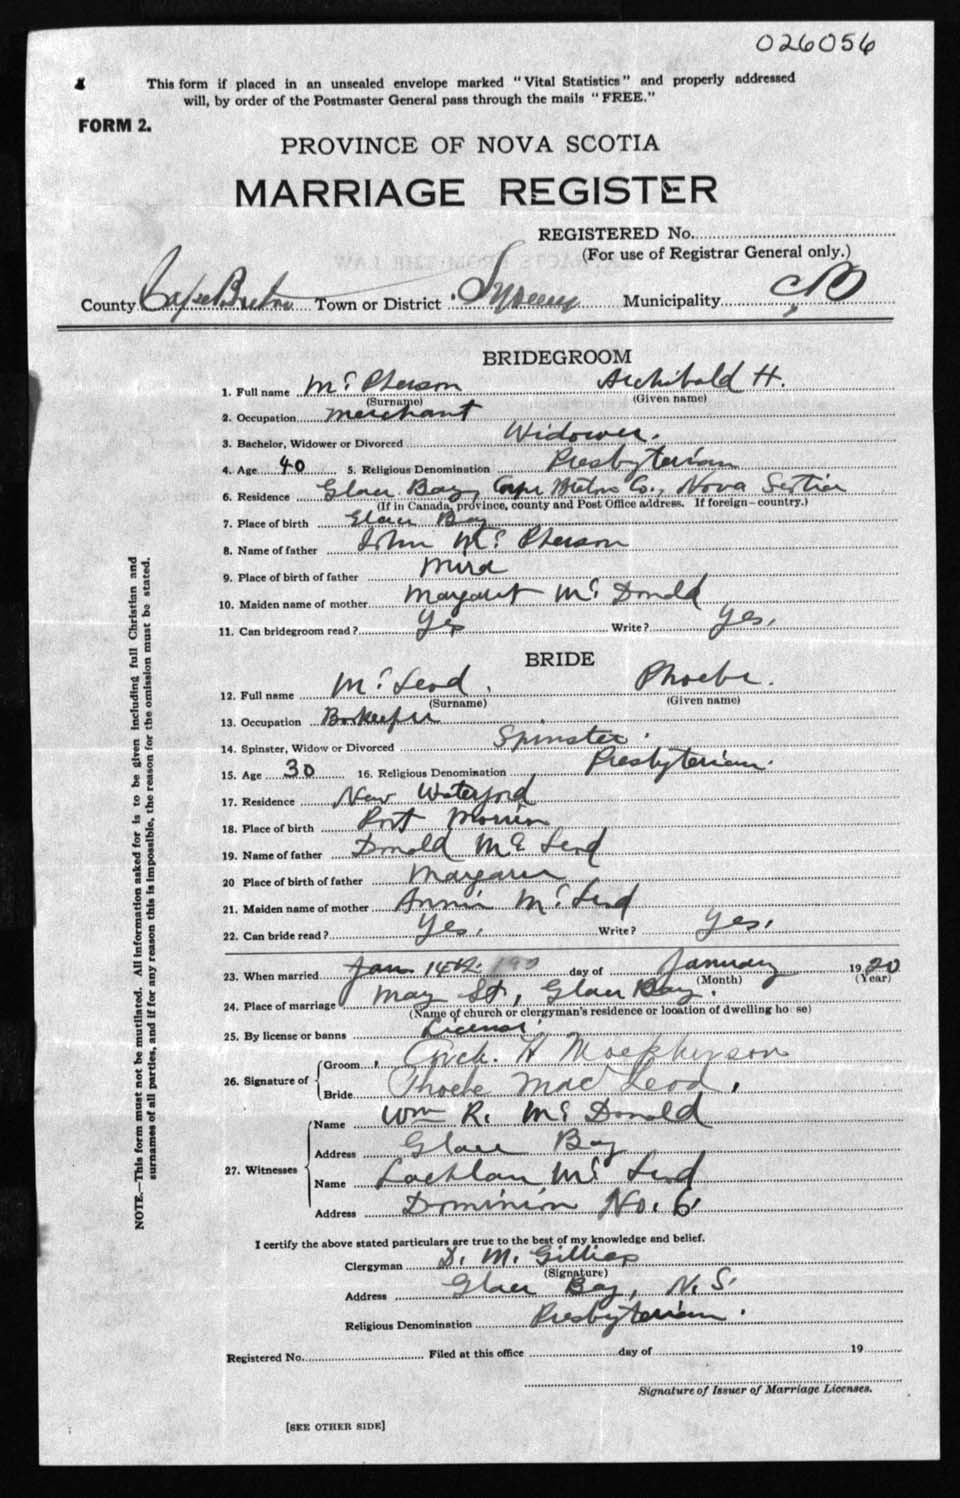 026056
This form if placed in an unsealed envelope marked "Vital Statistics" and properly addressed
will, by order of the Postmaster General pass through the mails "FREE."
FORM 2.
PROVINCE OF NOVA SCOTIA
MARRIAGE REGISTER
REGISTERED No.
(For use of Registrar General only.)
County Cape Breton Town or District Sydney Municipality C,B
BRIDEGROOM
1. Full name Mc Pherson Archibald H.
(Surname) (Given name)
2. Occupation merchant
3. Bachelor, Widower or Divorced Widower.
4. Age 40 5. Religious Denomination Presbyterian
6. Residence Glace Bay, Cape Breton Co., Nova Scotia
(If in Canada, province, county and Post Office address. If foreign—country.)
7. Place of birth Glace Bay
8. Name of father John Mc Pherson
9. Place of birth of father Mira
10. Maiden name of mother Margaret Mc Donald
11. Can bridegroom read? Yes Write? Yes.
BRIDE
12. Full name Mc Leod, Phoebe.
(Surname) (Given name)
13. Occupation Bookeeper
14. Spinster, Widow or Divorced Spinster.
15. Age 30 16. Religious Denomination Presbyterian.
17. Residence New Waterford
18. Place of birth Port Morien
19. Name of father Donald Mc Leod
20 Place of birth of father Margaree
21. Maiden name of mother Annie Mc Leod
22. Can bride read? Yes. Write? Yes.
23. When married Jan 14th day of January 1920
(Month) (Year)
24. Place of marriage May St, Glace Bay.
(Name of church or clergyman's residence or location of dwelling house)
25. By license or banns License.
26. Signature of Groom Arch. H Macpherson
Bride Phoebe MacLeod.
27. Witnesses Name Wm R. Mc Donald
Address Glace Bay
Name Lachlan Mc Leod
Address Dominion No. 6
I certify the above stated particulars are true to the best of my knowledge and belief.
Clergyman D. M. Gillies
(Signature)
Address Glace Bay, N.S.
Religious Denomination Presbyterian.
Registered No. Filed at this office day of 19
Signature of Issuer of Marriage Licenses.
[SEE OTHER SIDE]
NOTE.—This form must not be mutilated. All information asked for is to be given including full Christian and
surnames of all parties, and if for any reason this is impossible, the reason for the omission must be stated.